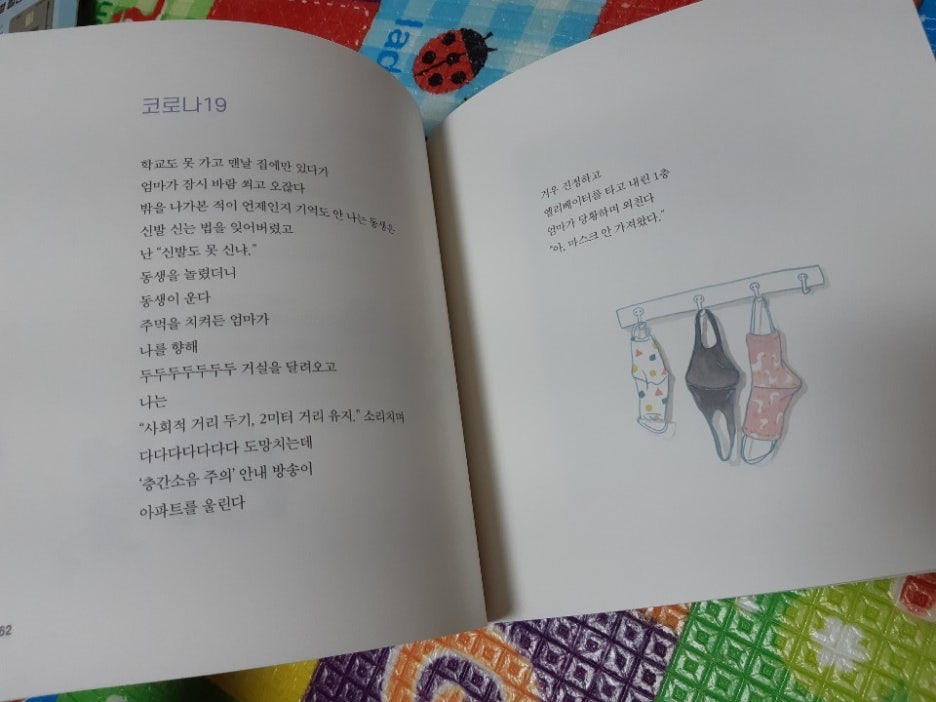 코로나19
학교도 못 가고 맨날 집에만 있다가
엄마가 잠시 바람 쐬고 오잖다
밖을 나가본 적이 언제인지 기억도 안 나는 동생은
신발 신는 법을 잊어버렸고
난 “신발도 못 신냐.”
동생을 놀렸더니
동생이 운다
주먹을 치켜든 엄마가
나를 향해
두두두두두두두 거실을 달려오고
나는
“사회적 거리 두기, 2미터 거리 유지.” 소리치며
다다다다다다다 도망치는데
‘층간소음 주의’ 안내 방송이
아파트를 울린다
62
겨우 진정하고
엘리베이터를 타고 내린 1층
엄마가 당황하며 외친다
“아, 마스크 안 가져왔다.”
lad